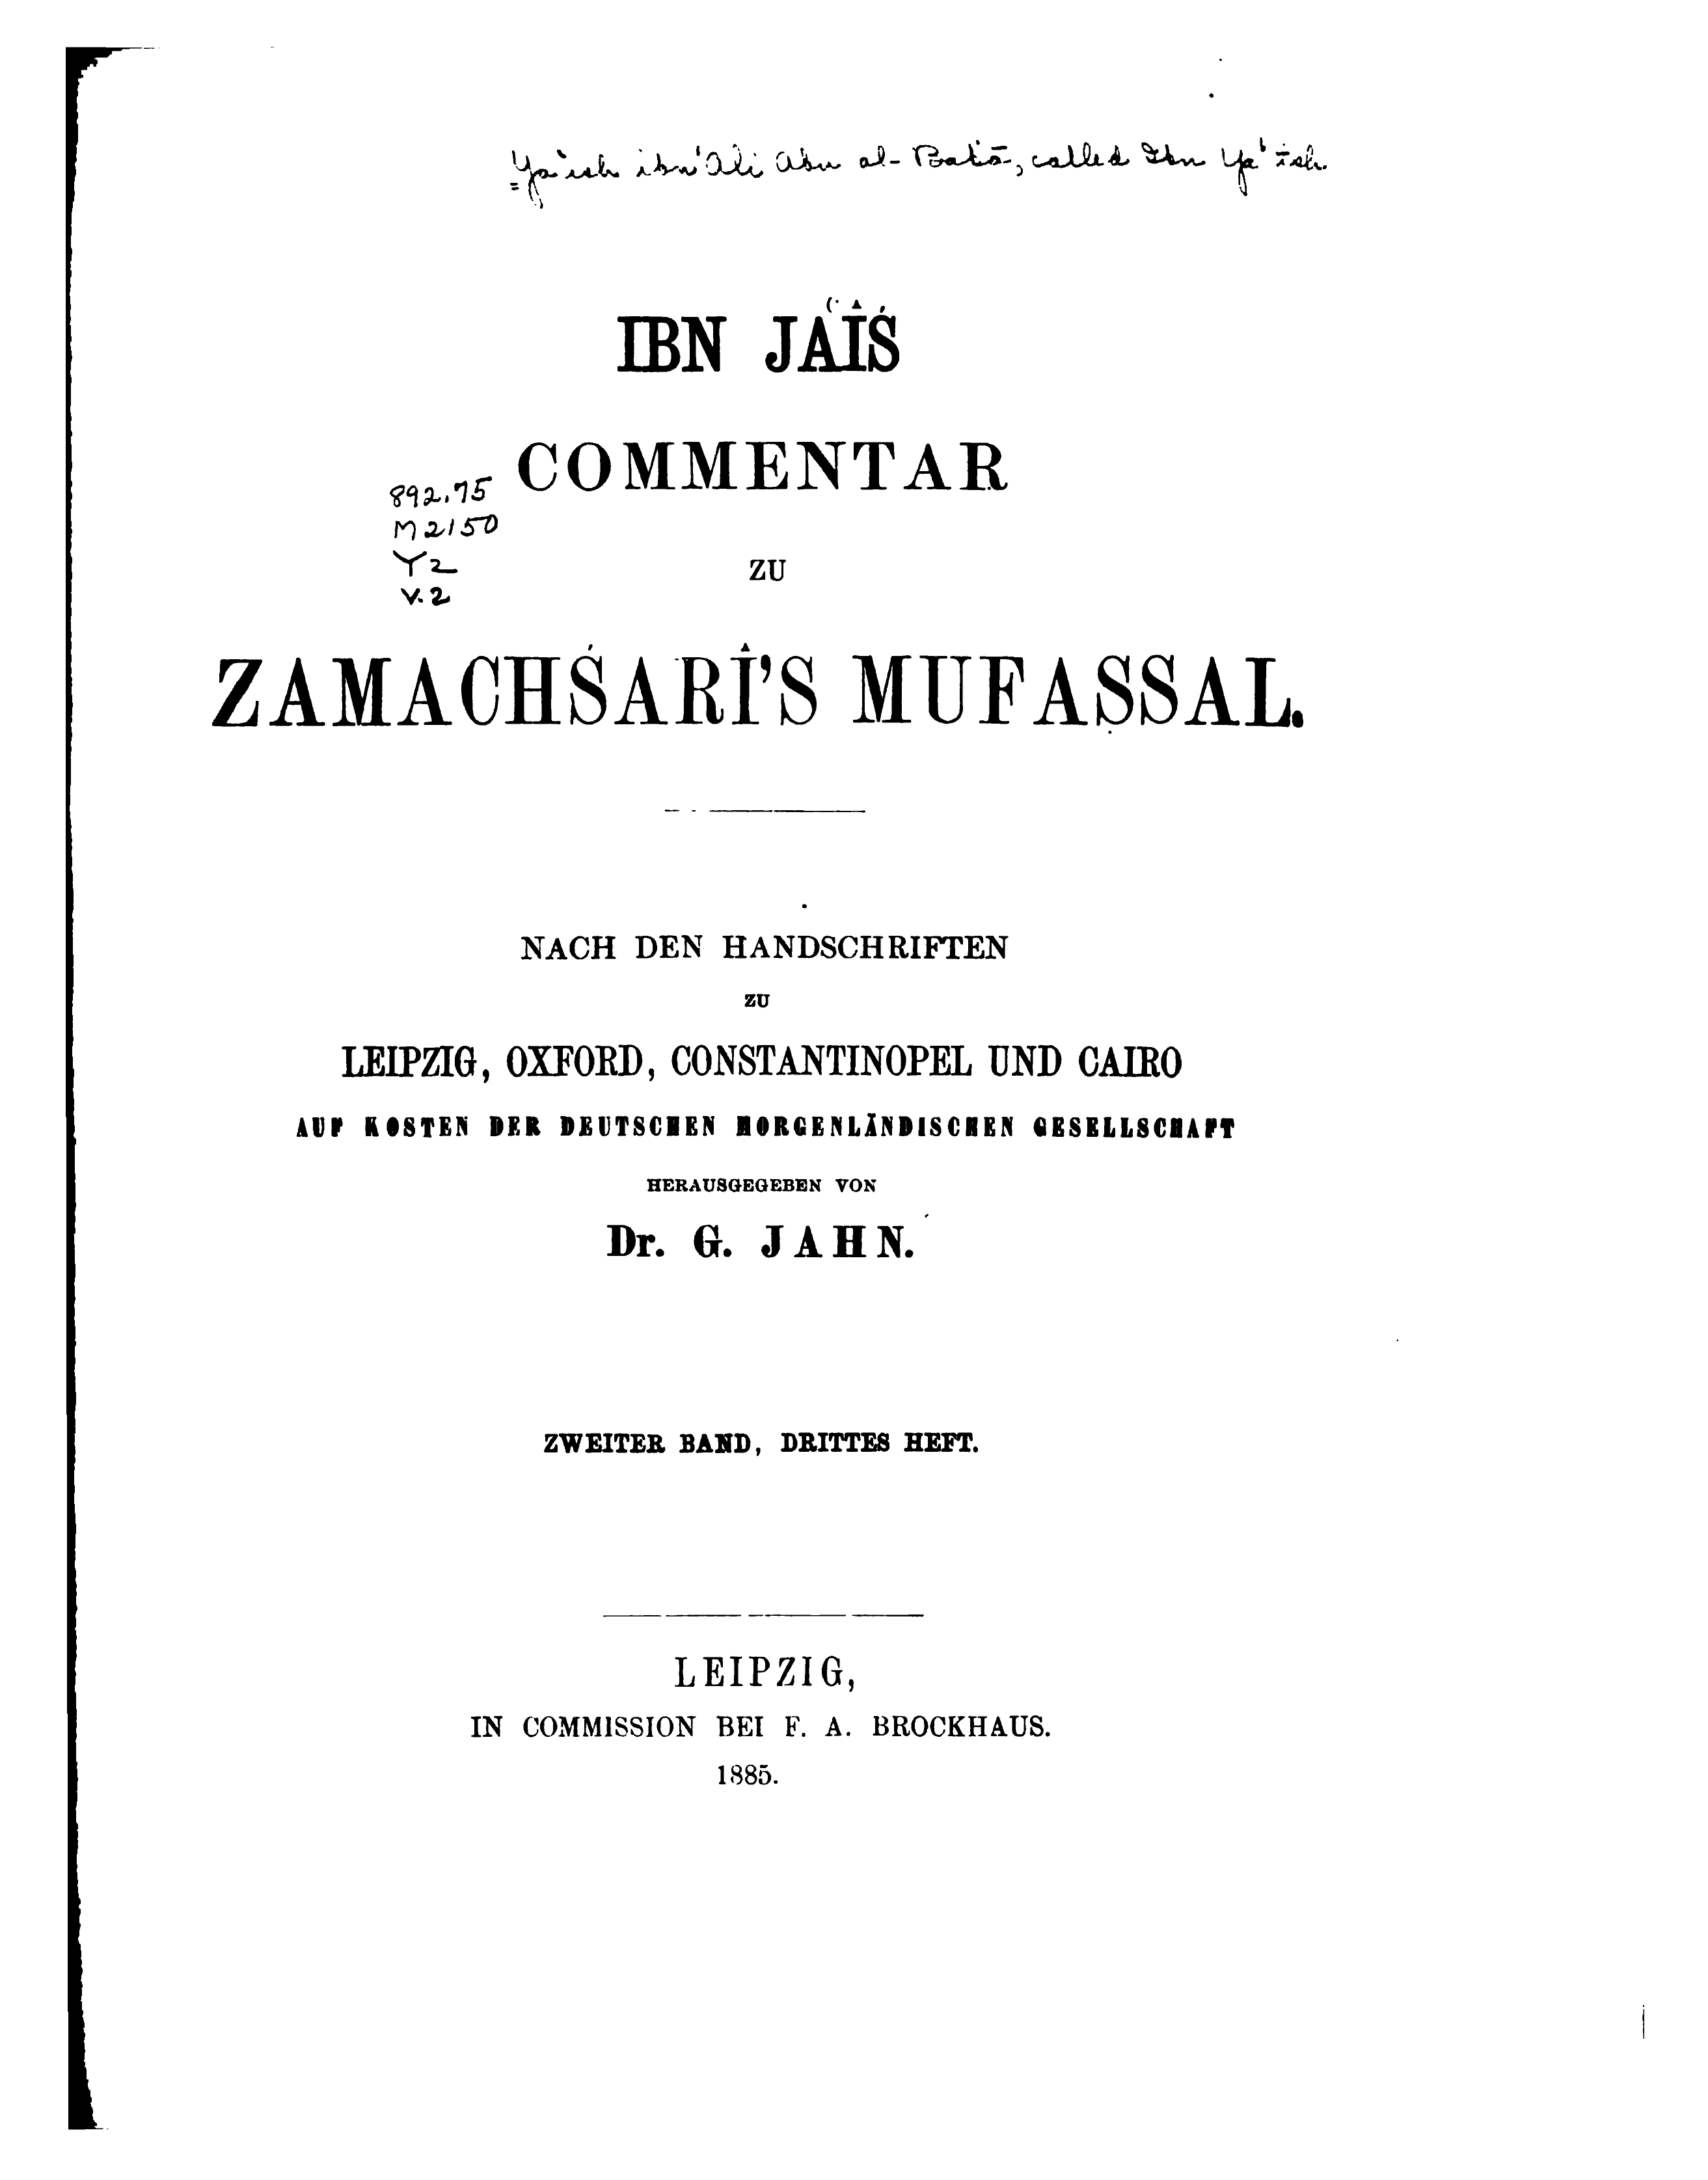 Ya'ish ibn 'Ali Abu al-Baḳā, called Ibn Ya'ish.
IBN JAʿÎŚ
COMMENTAR
892.75
M2150
Y2
v.2
ZU
ZAMACHŚARÎ'S MUFAṢSAL.
NACH DEN HANDSCHRIFTEN
ZU
LEIPZIG, OXFORD, CONSTANTINOPEL UND CAIRO
AUF KOSTEN DER DEUTSCHEN MORGENLÄNDISCHEN GESELLSCHAFT
HERAUSGEGEBEN VON
Dr. G. JAHN.
ZWEITER BAND, DRITTES HEFT.
LEIPZIG,
IN COMMISSION BEI F. A. BROCKHAUS.
1885.